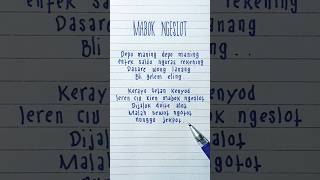 MABOK NGESLOT
Depo maning depo maning
entek saldo nguras rekening
Dasare wong lanang
Bli gelem eling..
Keraya belan kenyod
leren ciu kien mabok ngeslot
Dijaluk duite alot
Malah sewot ngotot
nunggu jekpot